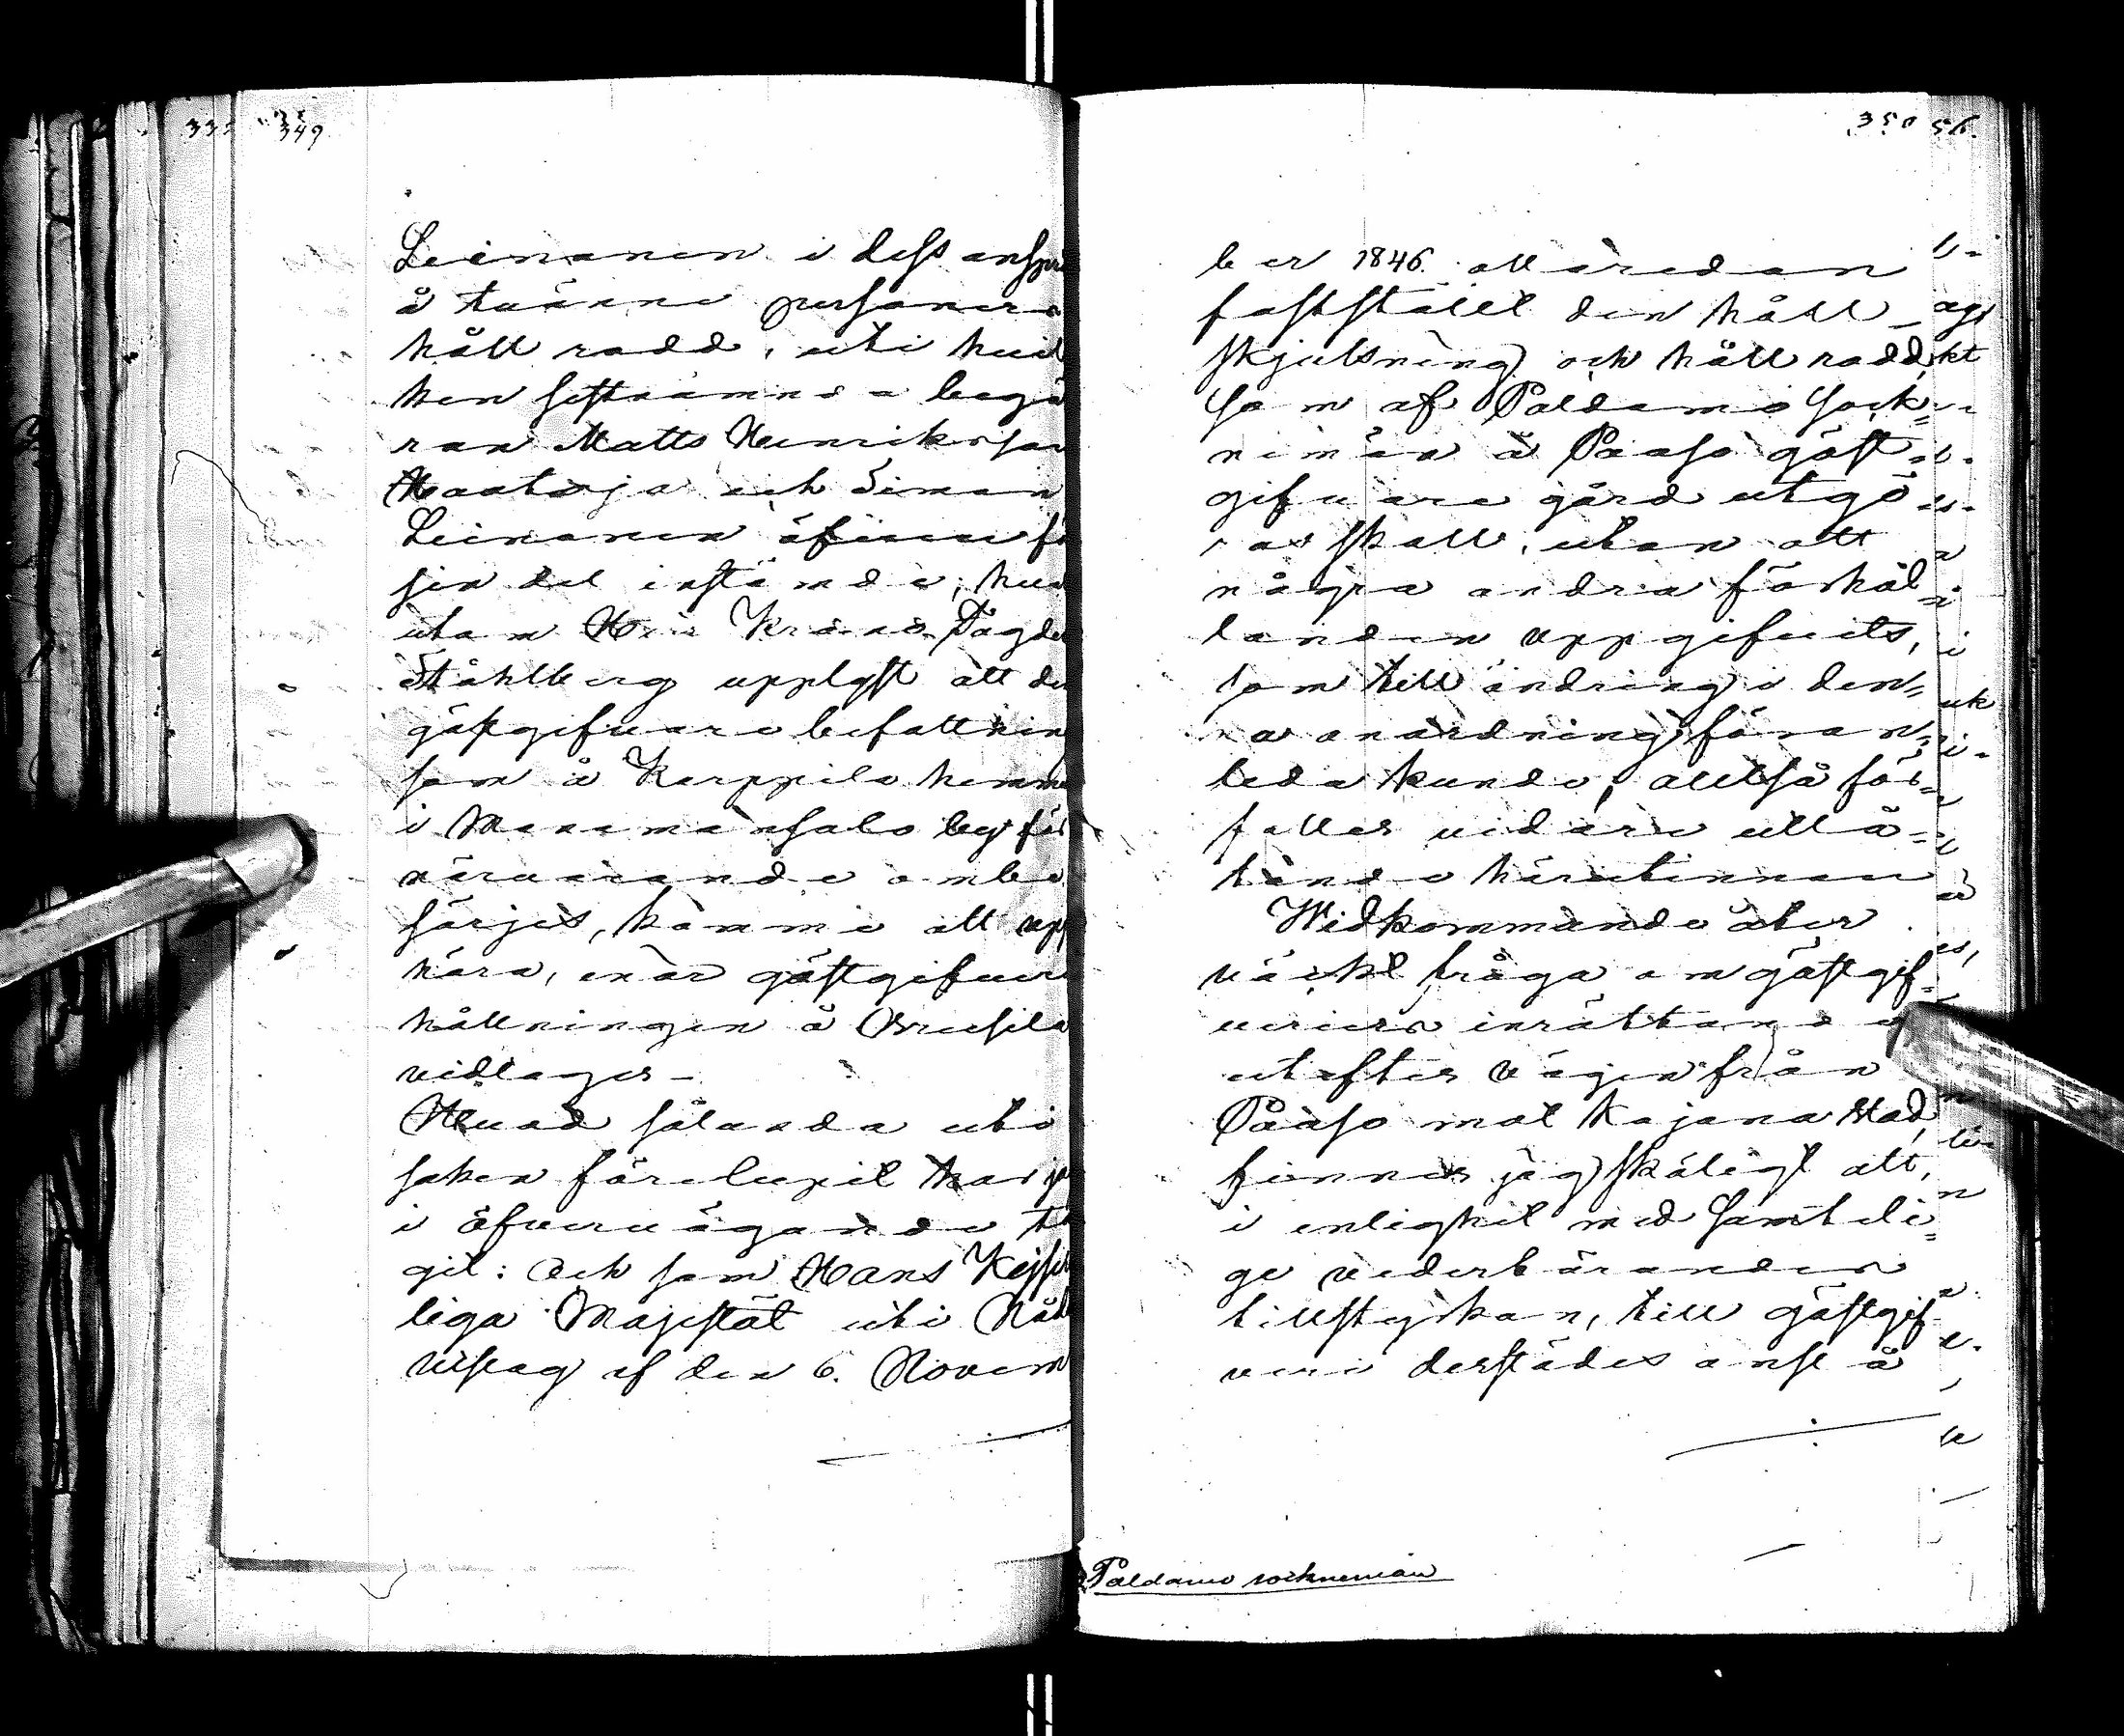 349
Leinanen i dess anspr
å tvänne personers
håll radd, uti hvil
ken sistnämnda begä
ran Matts Henriksson
Haataja och Simon
Leinanen äfven fö
sin del instämde, hvar
utom Herr Krono Fogden
Ståhlberg upplyst att den
gästgifvare befattning
som å Karppila hemma
i Manamansalo by för
närvarande ombe
sörjes, komme att upp
höra, enär gästgifveri
hållningen å
vidtages —
Hvad sålunda uti
saken förelupit har ja
i öfvervägande ta
git: Och som Hans Kejser
liga Majestät uti Nåd
utslag af den 6. Novem
350
ber 1846. allaredan
fastställt den håll
skjutsning och håll radd,
som af Paldamo sock=
nemän å Paaso gäst=
gifvare gård utgö
ras skall, utan att
några andra förhål=
landen uppgifvits,
som till ändring i den=
na anordning föran=
leda kunde, alltså för=
faller vidare utlå=
tande häruti
Widkommande åter
väckt fråga om gästgif=
veriers inrättande
utefter vägen från
Paaso mot Kajana stad,
finner jag skäligt att,
i enlighet med samteli=
ge vederbörandes
tillstyrkan, till gästgif=
veri derstädes anse å
Paldamo socknemän